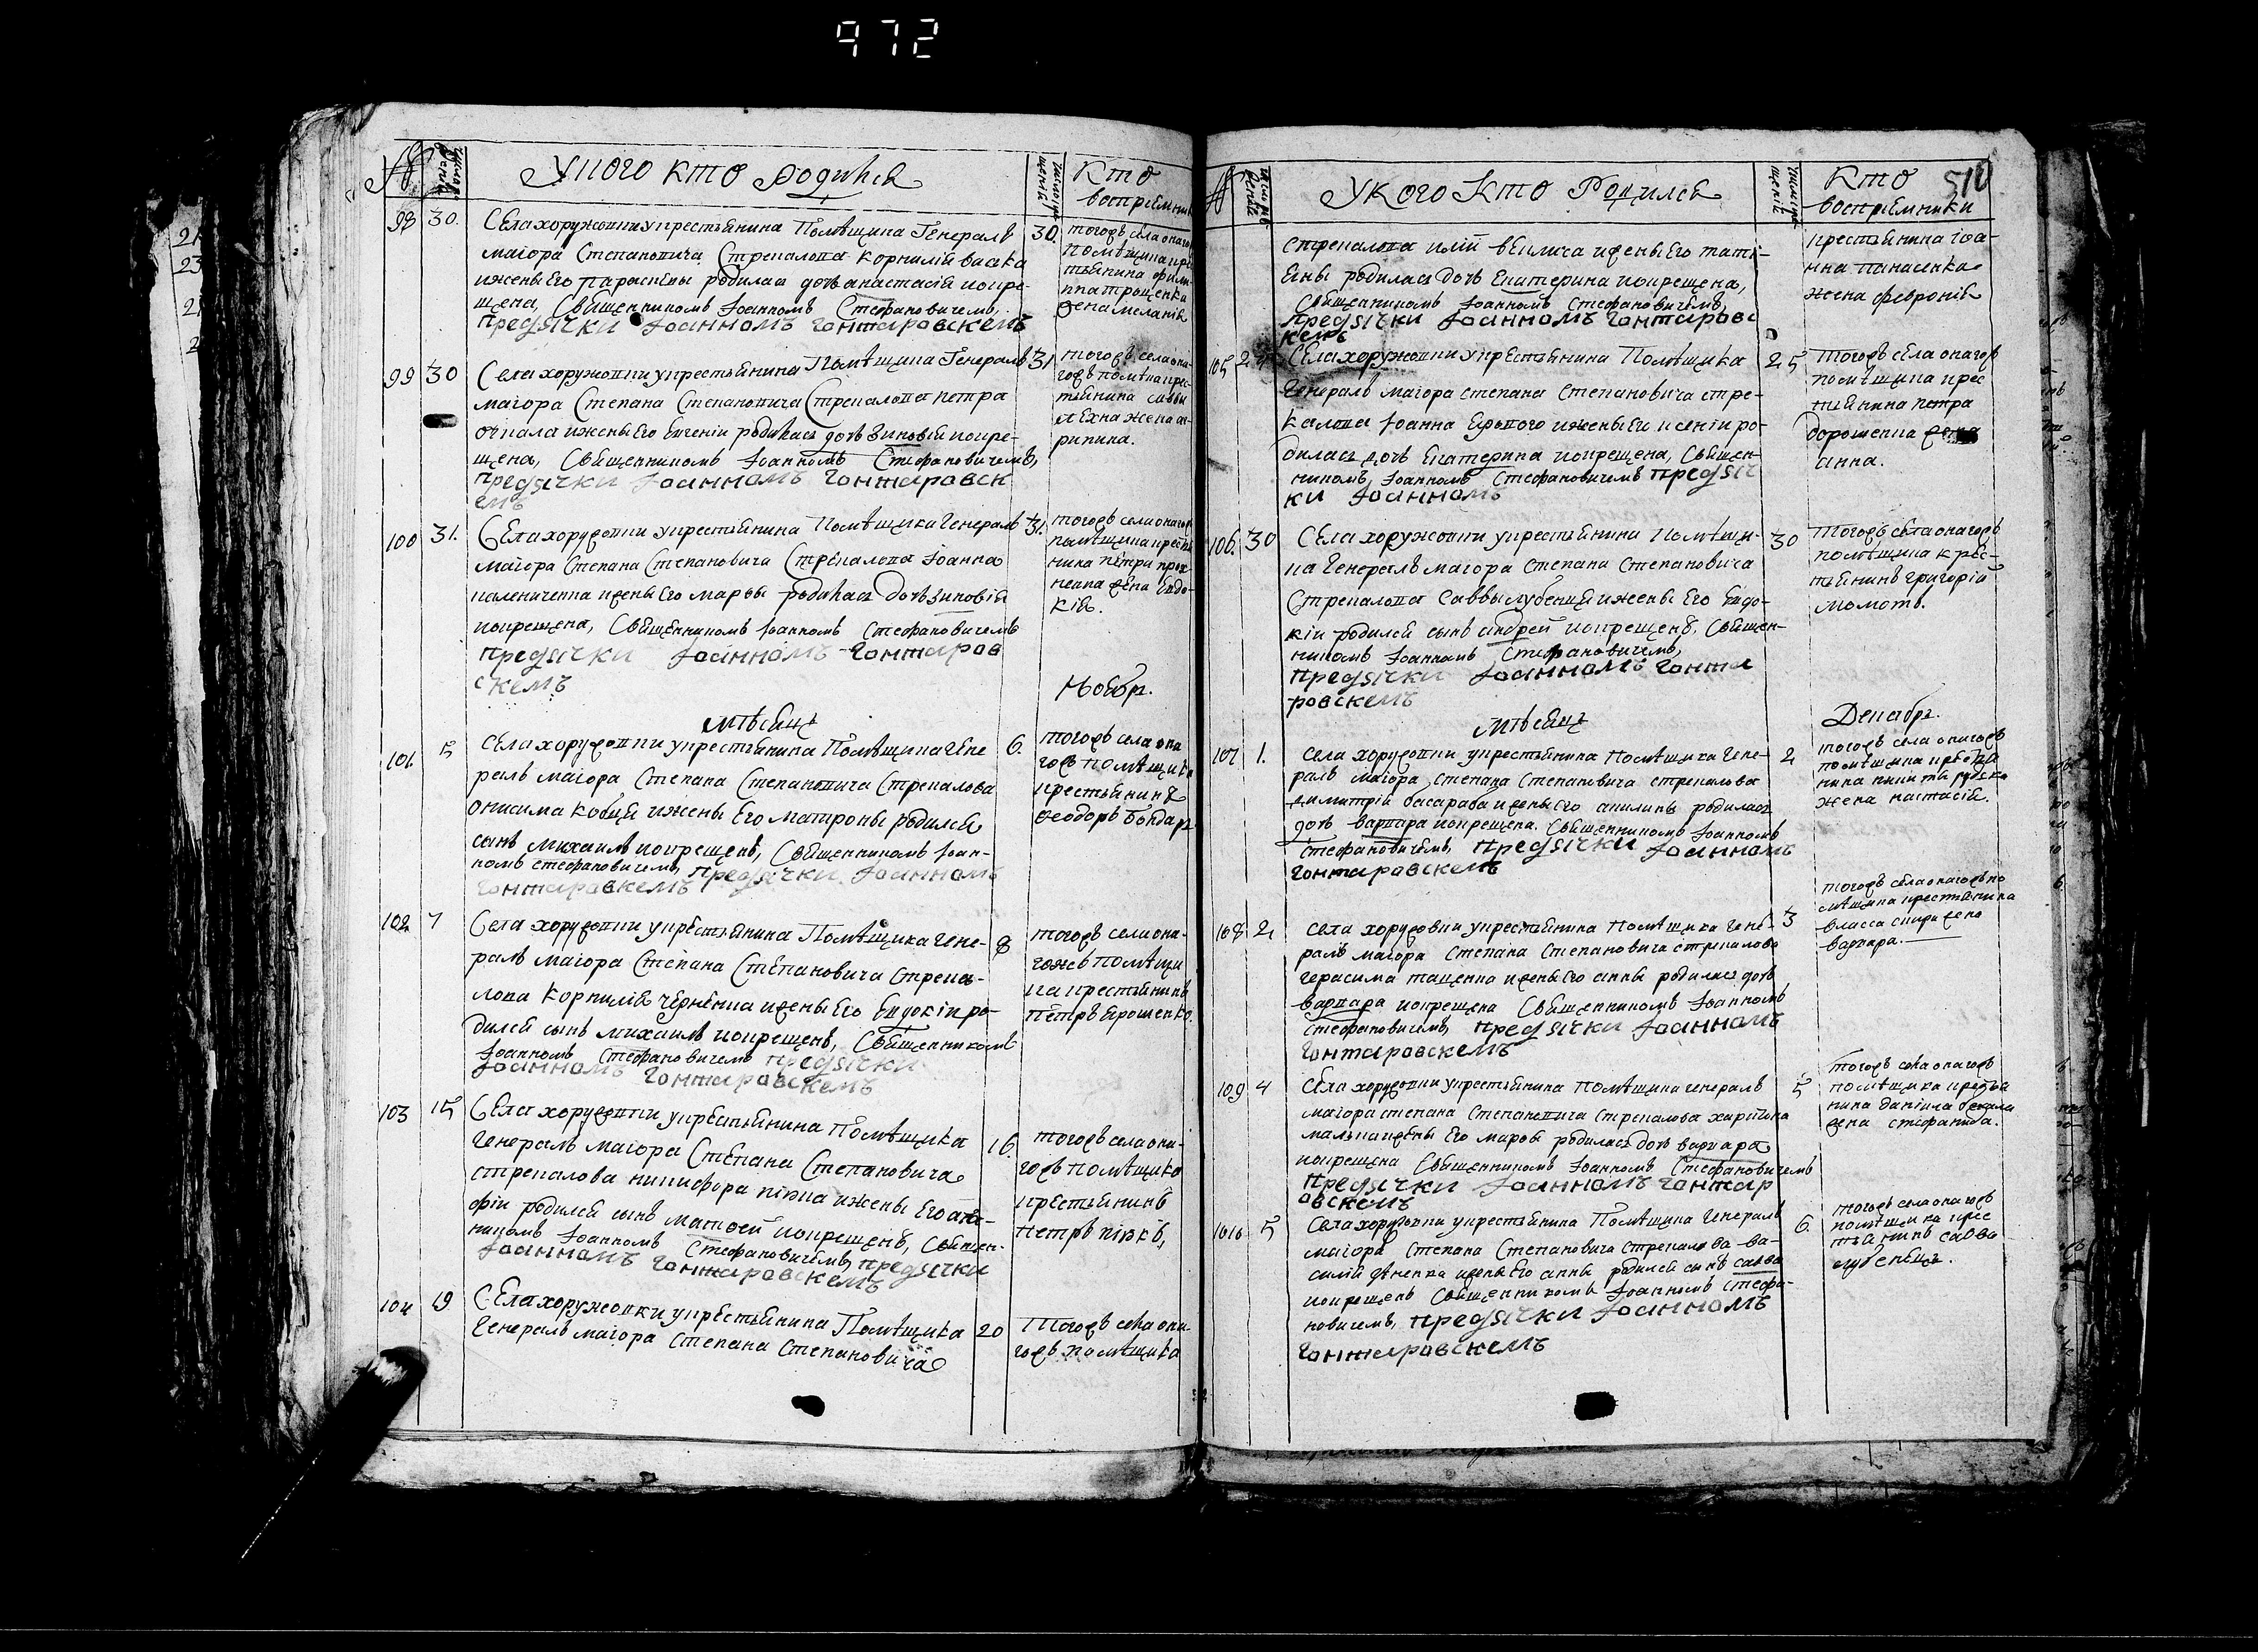 972
№
число рожденія
У кого кто родился
число крещенія
Кто
воспріемники
98 30.
Села хоружовки у крестьянина Помѣщика Генералъ
маіора Степановича Стрекалова корнилія васка
и жены его параскевы родилась дочь анастасія и окре-
щена, Священникомъ Іоанномъ Стефановичемъ,
предячки Іоанномъ Гонтаровскемъ
30
тогожъ села оногожъ
помѣщика кре-
стьянина фили-
ппа трощенка
жена меланія
99 30
Села хоружовки у крестьянина Помѣщика Генералъ
маіора Степана Степановича Стрекалова петра
очкала и жены его Евгеніи родилась дочь Зиновія и окре-
щена, Священникомъ Іоанномъ Стефановичемъ,
предячки Іоанномъ Гонтаровск
емъ
31
тогожъ села оно-
гожъ помѣщика крес-
тьянина саввы
жена ага-
рипина.
100 31.
Села хоружовки у крестьянина Помѣщика Генералъ
маіора Степана Степановича Стрекалова Іоанна
и жены его марфы родилась дочь зиновія
и окрещена, Священникомъ Іоанномъ Стефановичемъ
предячки Іоанномъ Гонтаров
скемъ
31.
тогожъ села оногожъ
помѣщика крестья
нина петра
жена Евдо-
кія.
мѣсяцъ Ноябр.
101. 5
Села хоружовки у крестьянина Помѣщика Гене
ралъ маіора Степана Степановича Стрекалова
онисима кобця и жены его матроны родился
сынъ михаилъ и окрещенъ, Священникомъ Іоан-
номъ стефановичемъ, предячки Іоанномъ
Гонтаровскемъ
6.
тогожъ села оно
гожъ помѣщика
крестьянинъ
Феодоръ Бондарь
102 7
Села хоружовки у крестьянина Помѣщика Гене-
ралъ маіора Степана Степановича Стрека-
лова Корнилія черненка и жены его Евдокіи ро-
дился сынъ михаилъ и окрещенъ, Священникомъ
Іоанномъ Стефановичемъ предячки
Іоанномъ Гонтаровскемъ
8
тогожъ села оно-
гожъ помѣщи
ка крестьянинъ
Петръ Ярошенко.
103 15
Села хоружовки у крестьянина Помѣщика
Генералъ маіора Степана Степановича
стрекалова никифора пінка и жены его ага-
фіи родился сынъ матфей и окрещенъ, Священ-
никомъ Іоанномъ Стефановичемъ, предячки
Іоанномъ Гонтаровскемъ
16.
тогожъ села оно-
гожъ помѣщика
крестьянинъ
петръ пінкъ,
104 19
Села хоружовки у крестьянина Помѣщика
Генералъ маіора Степана Степановича
20
Тогожъ села оно-
гожъ помѣщика
510
№
число рожденія
У кого Кто Родился
число крещенія
Кто
воспріемники
стрекалова и жены его тати-
яны родилась дочь Екатерина и окрещена,
Священникомъ Іоанномъ Стефановичемъ,
предячки Іоанномъ Гонтаровс
кемъ
крестьянина Іоа-
нна панасенка
жена февронія
105 24
Села хоружовки у крестьянина Помѣщика
Генералъ маіора степана Степановича стре-
калова Іоанна и жены его ксеніи ро-
дилась дочь Екатерина и окрещена, Священ-
никомъ, Іоанномъ Стефановичемъ предяч
ки Іоанномъ
25
тогожъ села оногожъ
помѣщика крес
тьянина петра
дорошенка жена
анна.
106. 30
Села хоружовки у крестьянина Помѣщи-
ка Генералъ маіора степана Степановича
Стрекалова Саввы лубенця и жены его Евдо-
кіи родился сынъ андрей и окрещенъ, Священ-
никомъ Іоанномъ Стефановичемъ,
предячки Іоанномъ Гонта
ровскемъ
30
Тогожъ села оногожъ
помѣщика крес-
тьянинъ григорій
момотъ.
мѣсяцъ Декабрь.
107 1.
Села хоружовки у крестьянина Помѣщика Гене-
ралъ маіора степана Степановича стрекалова
димитрія басараба и жены его акилины родилась
дочь варвара и окрещена. Священникомъ Іоанномъ
Стефановичемъ, предячки Іоанномъ
Гонтаровскемъ
2
тогожъ села оногожъ
помѣщика крестья
нина никиты рудька
жена настасія.
108 2
Села хоружовки у крестьянина Помѣщика Гене-
ралъ маіора Степана Степановича стрекалова
герасима таценка и жены его анны родилась дочь
варвара и окрещена Священникомъ Іоанномъ
Стефановичемъ, предячки Іоанномъ
Гонтаровскемъ
3
тогожъ села оногожъ по
мѣщика крестьянина
власа жена
варвара.
109 4
Села хоружовки у крестьянина Помѣщика Генералъ
маіора степана Степановича Стрекалова харитона
и жены его марфы родилась дочь варвара
и окрещена Священникомъ Іоанномъ Стефановичемъ
предячки Іоанномъ Гонтар
овскемъ
5
тогожъ села оногожъ
помѣщика крестья
нина даніила
жена стефанида.
1010 5
Села хоружовки у крестьянина Помѣщика Генералъ
маіора Степана Степановича стрекалова ва-
силія и жены его анны родился сынъ савва
и окрещенъ Священникомъ Іоанномъ Стефа-
новичемъ, предячки Іоанномъ
Гонтаровскемъ
6.
тогожъ села оногожъ
помѣщика крес
тьянинъ савва
лубенець.